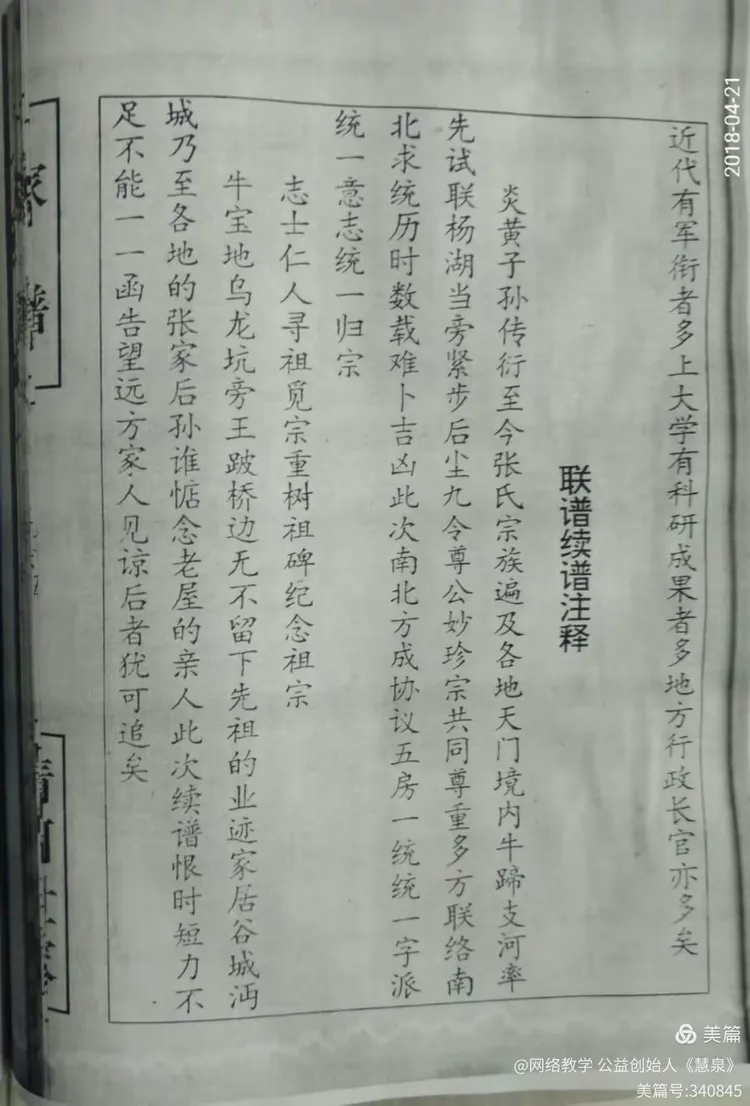 近代有军衔者多上大学有科研成果者多地方行政长官亦多矣
联谱续谱注释
炎黄子孙传衍至今张氏宗族遍及各地天门境内牛蹄支河率
先试联杨湖当旁紧步后尘九令尊公妙珍宗共同尊重多方联络南
北求统历时数载难卜吉凶此次南北方成协议五房一统统一字派
统一意志统一归宗
志士仁人寻祖觅宗重树祖碑纪念祖宗
牛宝地乌龙坑旁王跛桥边无不留下先祖的业迹家居谷城沔
城乃至各地的张家后孙谁惦念老屋的亲人此次续谱恨时短力不
足不能一一函告望远方家人见谅后者犹可追矣
家谱
清河
2018-04-21
美篇
@网络教学 公益创始人《慧泉》
美篇号:340845